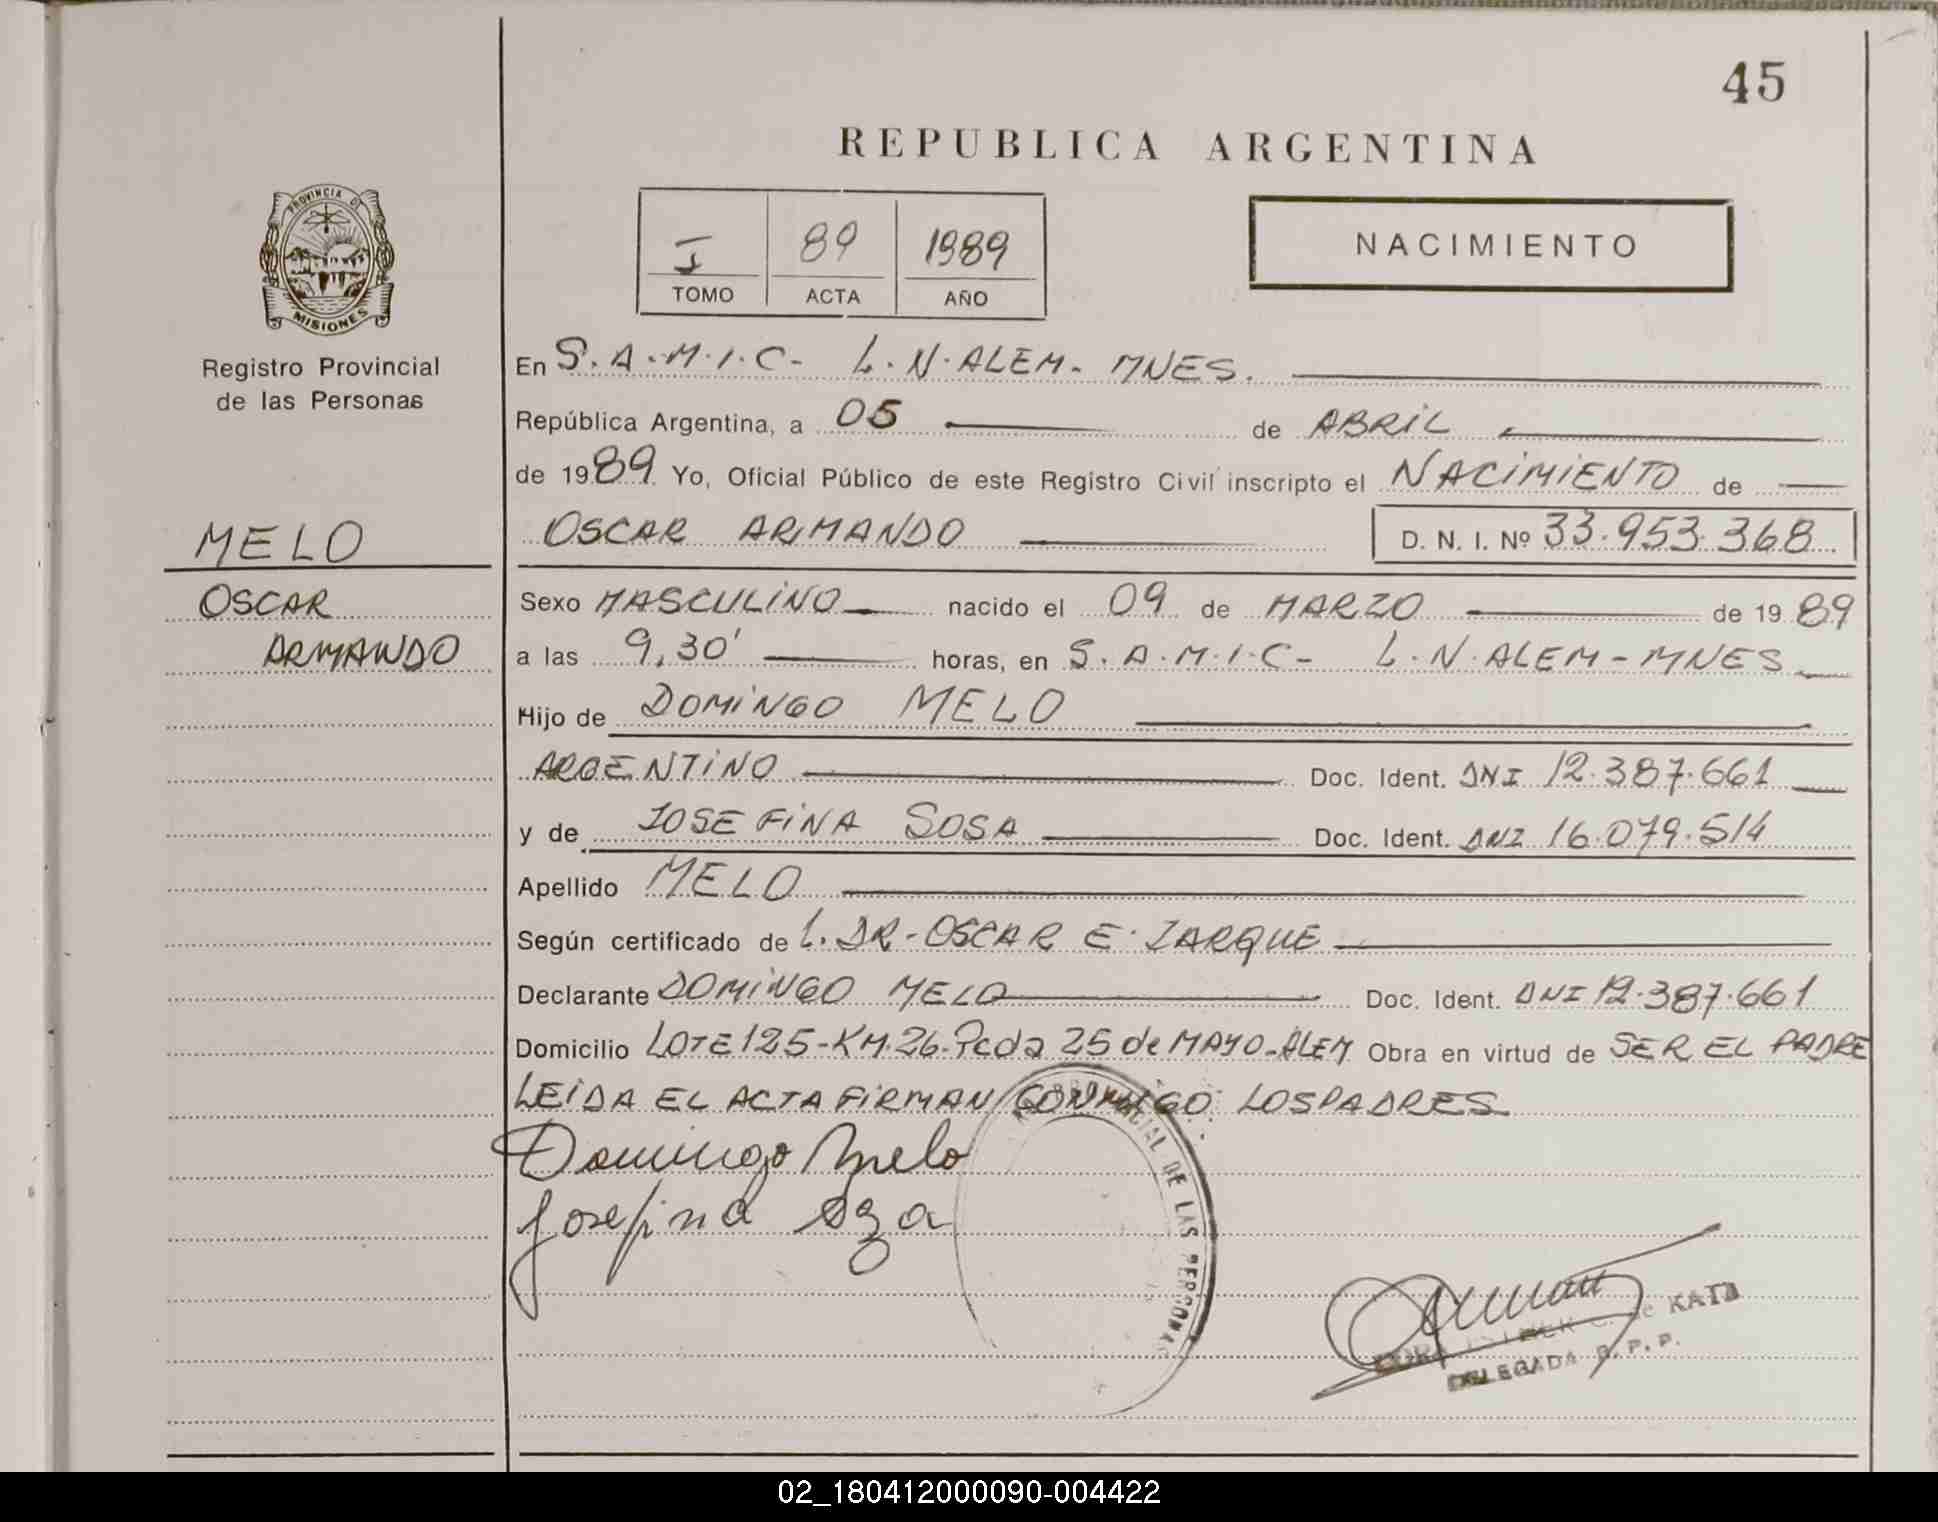 45
REPUBLICA ARGENTINA
PROVINCIA DE
MISIONES
Registro Provincial
de las Personas
I 89 1989
TOMO ACTA AÑO
NACIMIENTO
En S.A.M.I.C- L.N.ALEM- MNES.
República Argentina, a 05 de ABRIL
de 1989 Yo, Oficial Público de este Registro Civil inscripto el NACIMIENTO de
OSCAR ARMANDO D. N. I. Nº 33.953.368
MELO
OSCAR
ARMANDO
Sexo MASCULINO nacido el 09 de MARZO de 1989
a las 9,30' horas, en S.A.M.I.C- L.N.ALEM-MNES
Hijo de DOMINGO MELO
ARGENTINO Doc. Ident. DNI 12.387.661
y de JOSEFINA SOSA Doc. Ident. DNI 16.079.514
Apellido MELO
Según certificado de L. DR-OSCAR E. ZARQUE
Declarante DOMINGO MELO Doc. Ident. DNI 12.387.661
Domicilio LOTE 125-KM.26-Pcda 25 de MAYO-ALEM Obra en virtud de SER EL PADRE
LEIDA EL ACTA FIRMAN CONMIGO LOS PADRES
Domingo Melo
Josefina Soza
PROVINCIAL DE LAS PERSONAS
de KATZ
DELEGADA R. P. P.
02_180412000090-004422